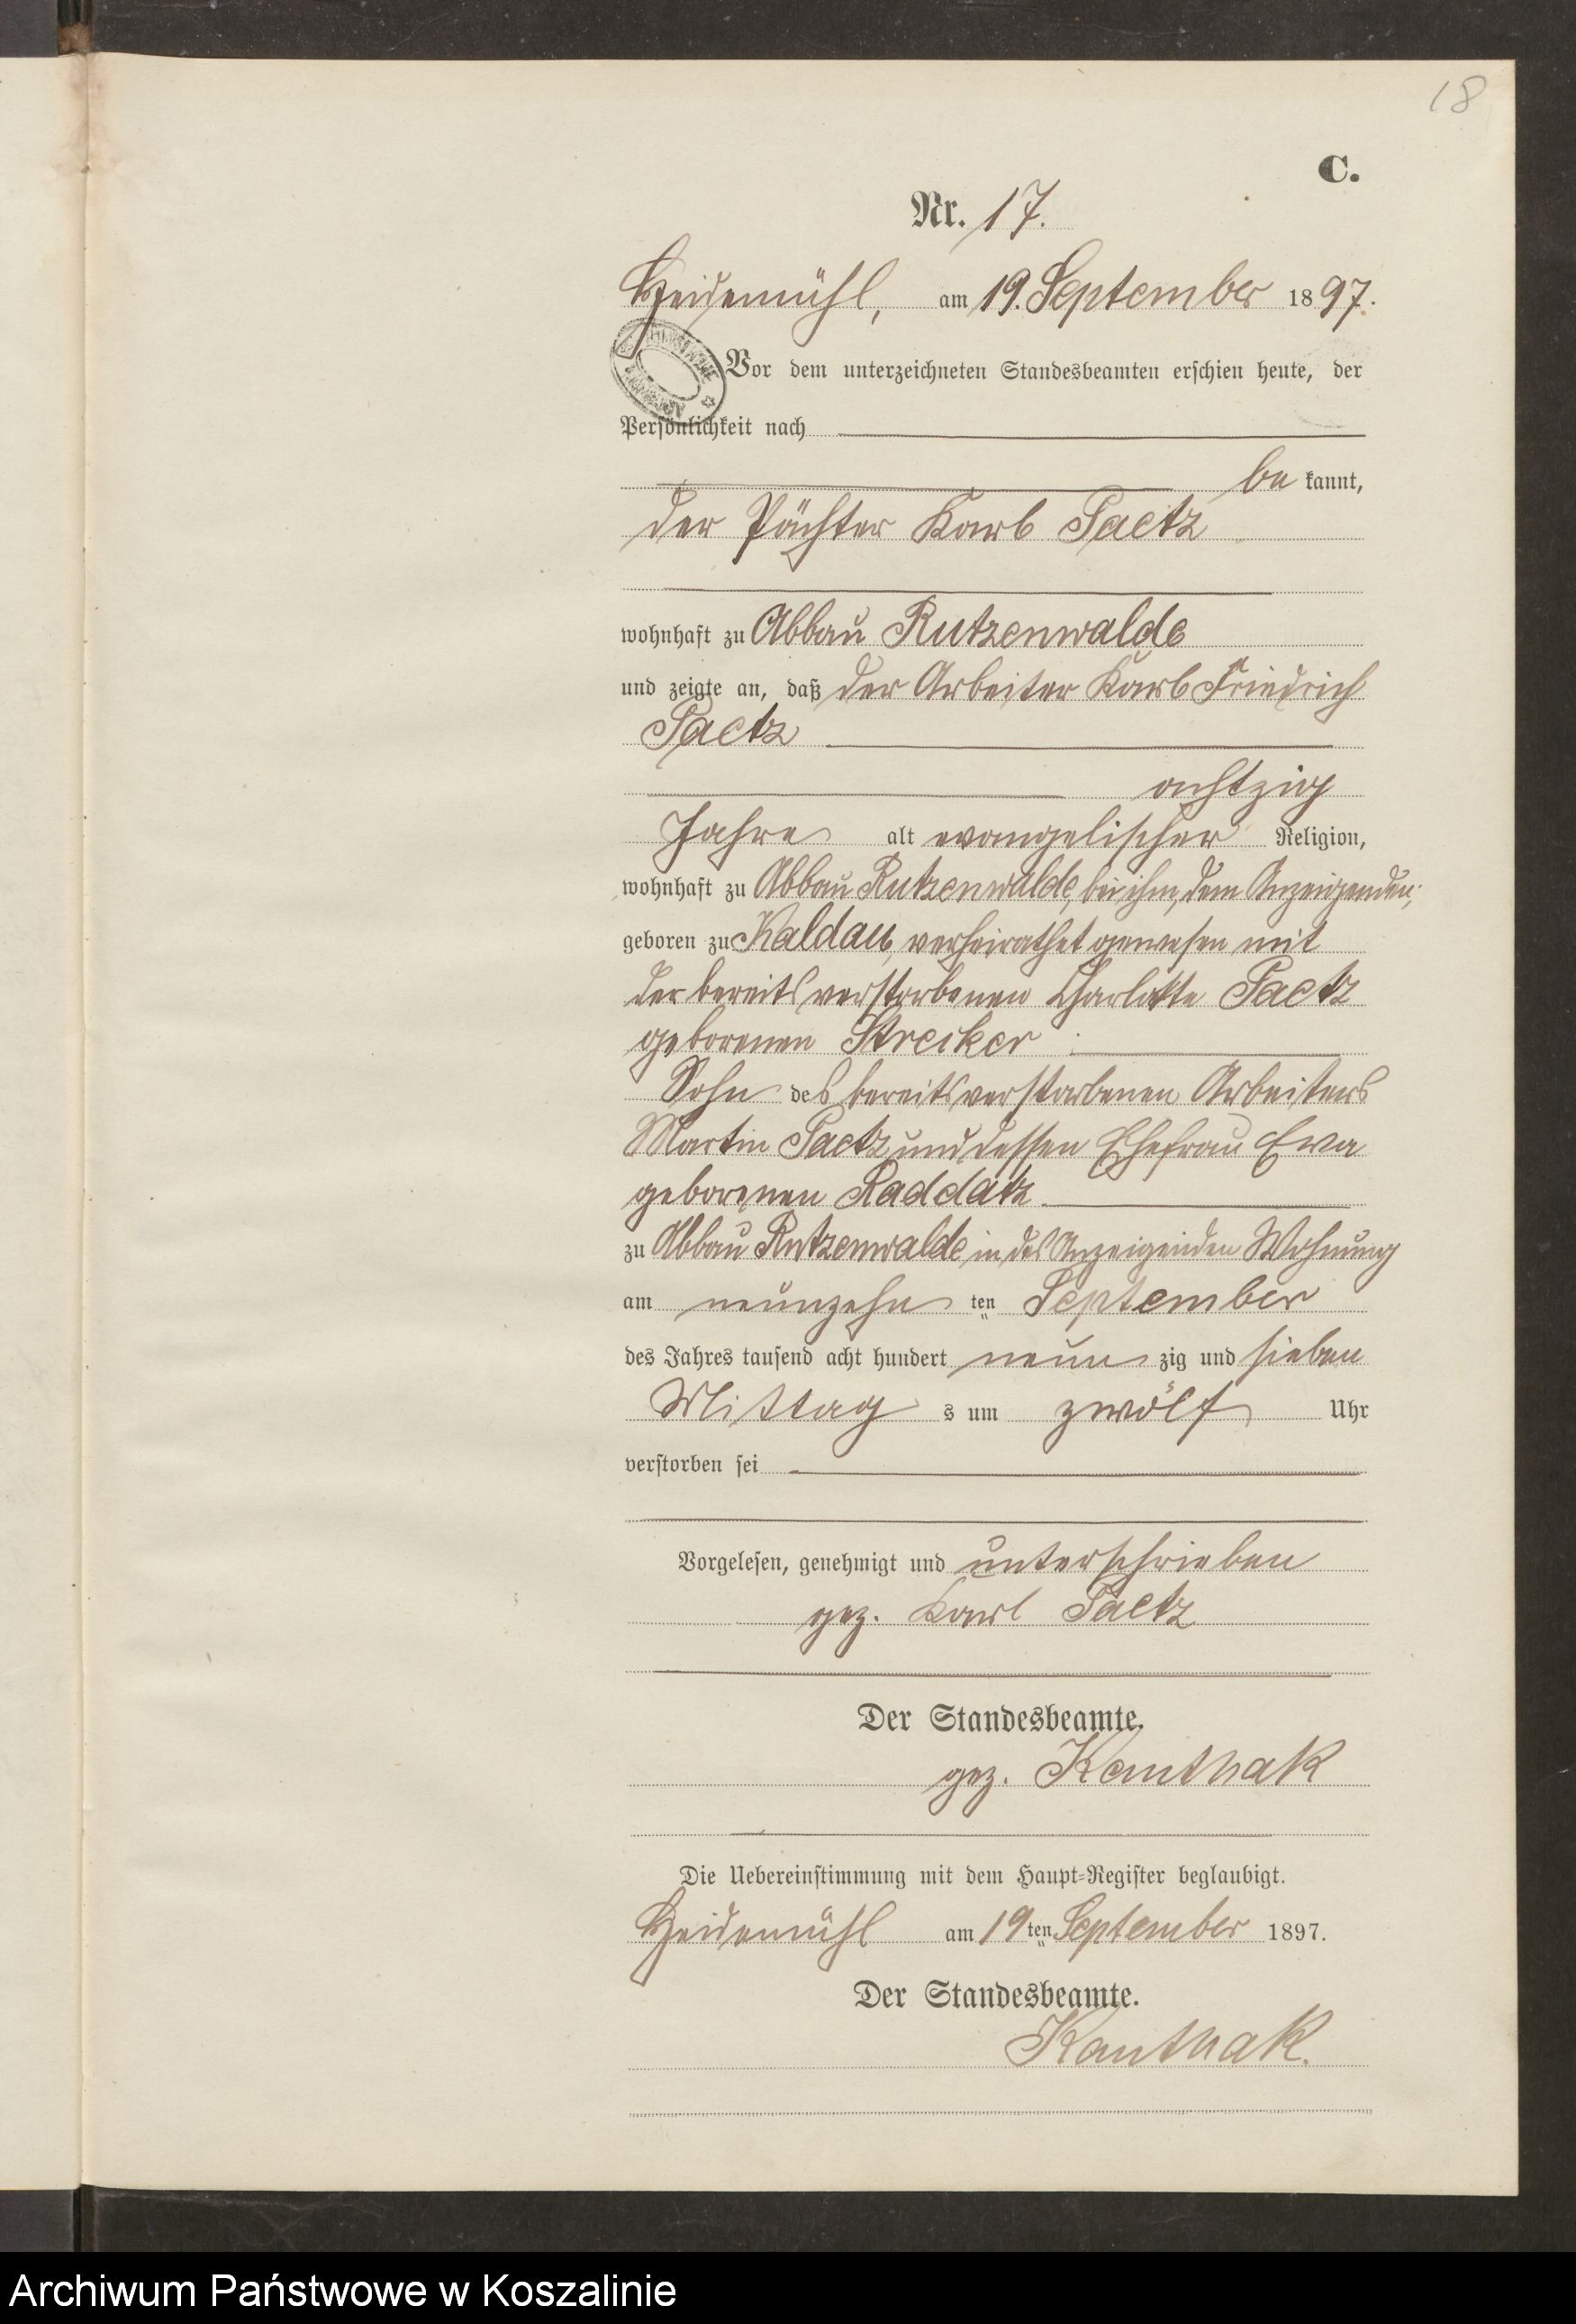 18
C.
Nr. 17.
Heidemühl, am 19. September 1897.
Vor dem unterzeichneten Standesbeamten erschien heute, der
Persönlichkeit nach
be kannt,
der Pächter Karl Paetz
wohnhaft zu Abbau Rutzenwalde
und zeigte an, daß der Arbeiter Karl Friedrich
Paetz
achtzig
Jahre alt evangelischer Religion,
wohnhaft zu Abbau Rutzenwalde, bei ihm, dem Anzeigenden;
geboren zu Kaldau, verheirathet gewesen mit
der bereits verstorbenen Charlotte Paetz
geborenen Strecker
Sohn des bereits verstorbenen Arbeiters
Martin Paetz und dessen Ehefrau Ewa
geborenen Raddatz
zu Abbau Rutzenwalde in des Anzeigenden Wohnung
am neunzehn ten September
des Jahres tausend acht hundert neun zig und sieben
Mittag s um zwölf Uhr
verstorben sei
Vorgelesen, genehmigt und unterschrieben
gez. Karl Paetz
Der Standesbeamte.
gez. Kanthak
Die Uebereinstimmung mit dem Haupt-Register beglaubigt.
Heidemühl am 19ten September 1897.
Der Standesbeamte.
Kanthak.
Archiwum Państwowe w Koszalinie